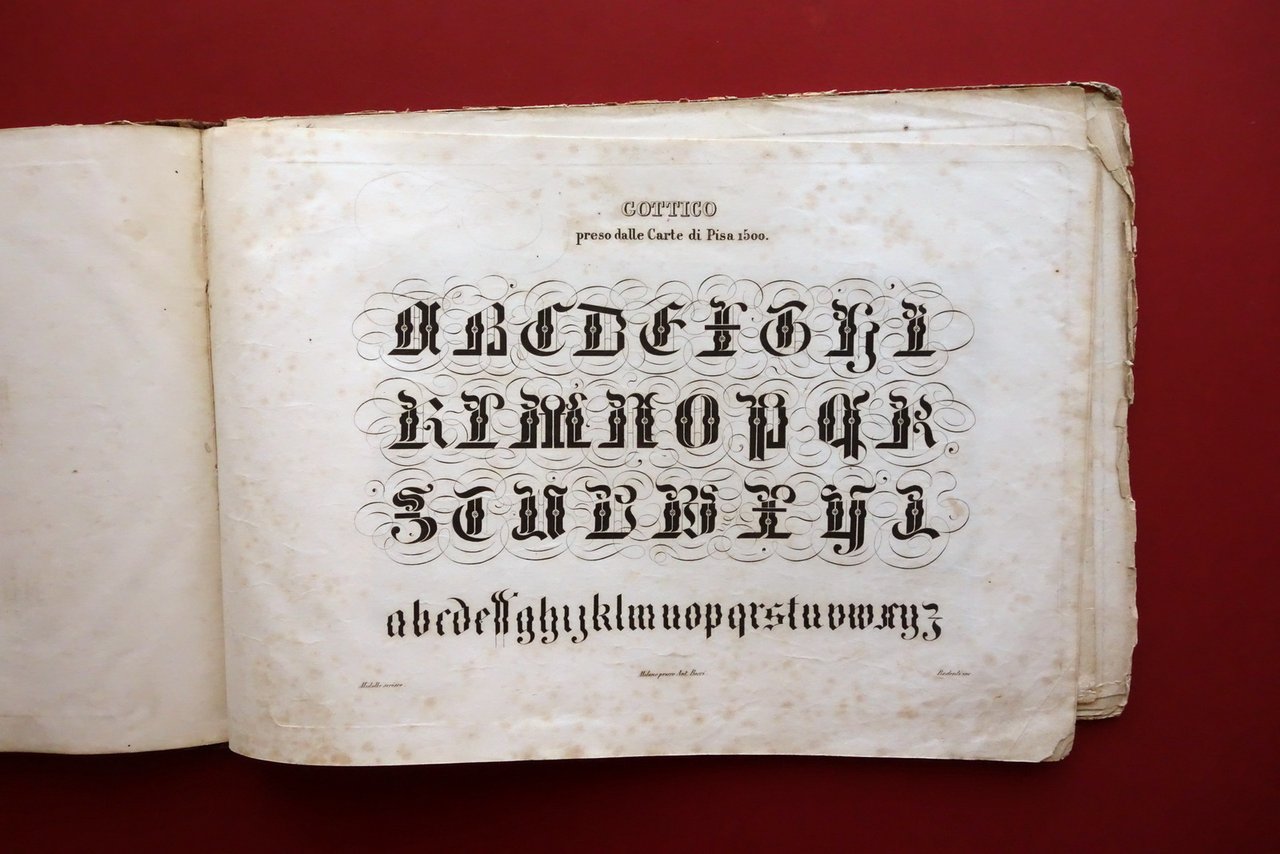 GOTTICO
preso dalle Carte di Pisa 1500.
A B C D E F G H I
K L M N O P Q R
S T U V W X Y Z
abcdeffghijklmnopqrstuvwxyz
scrisse Milano presso Ant. inc